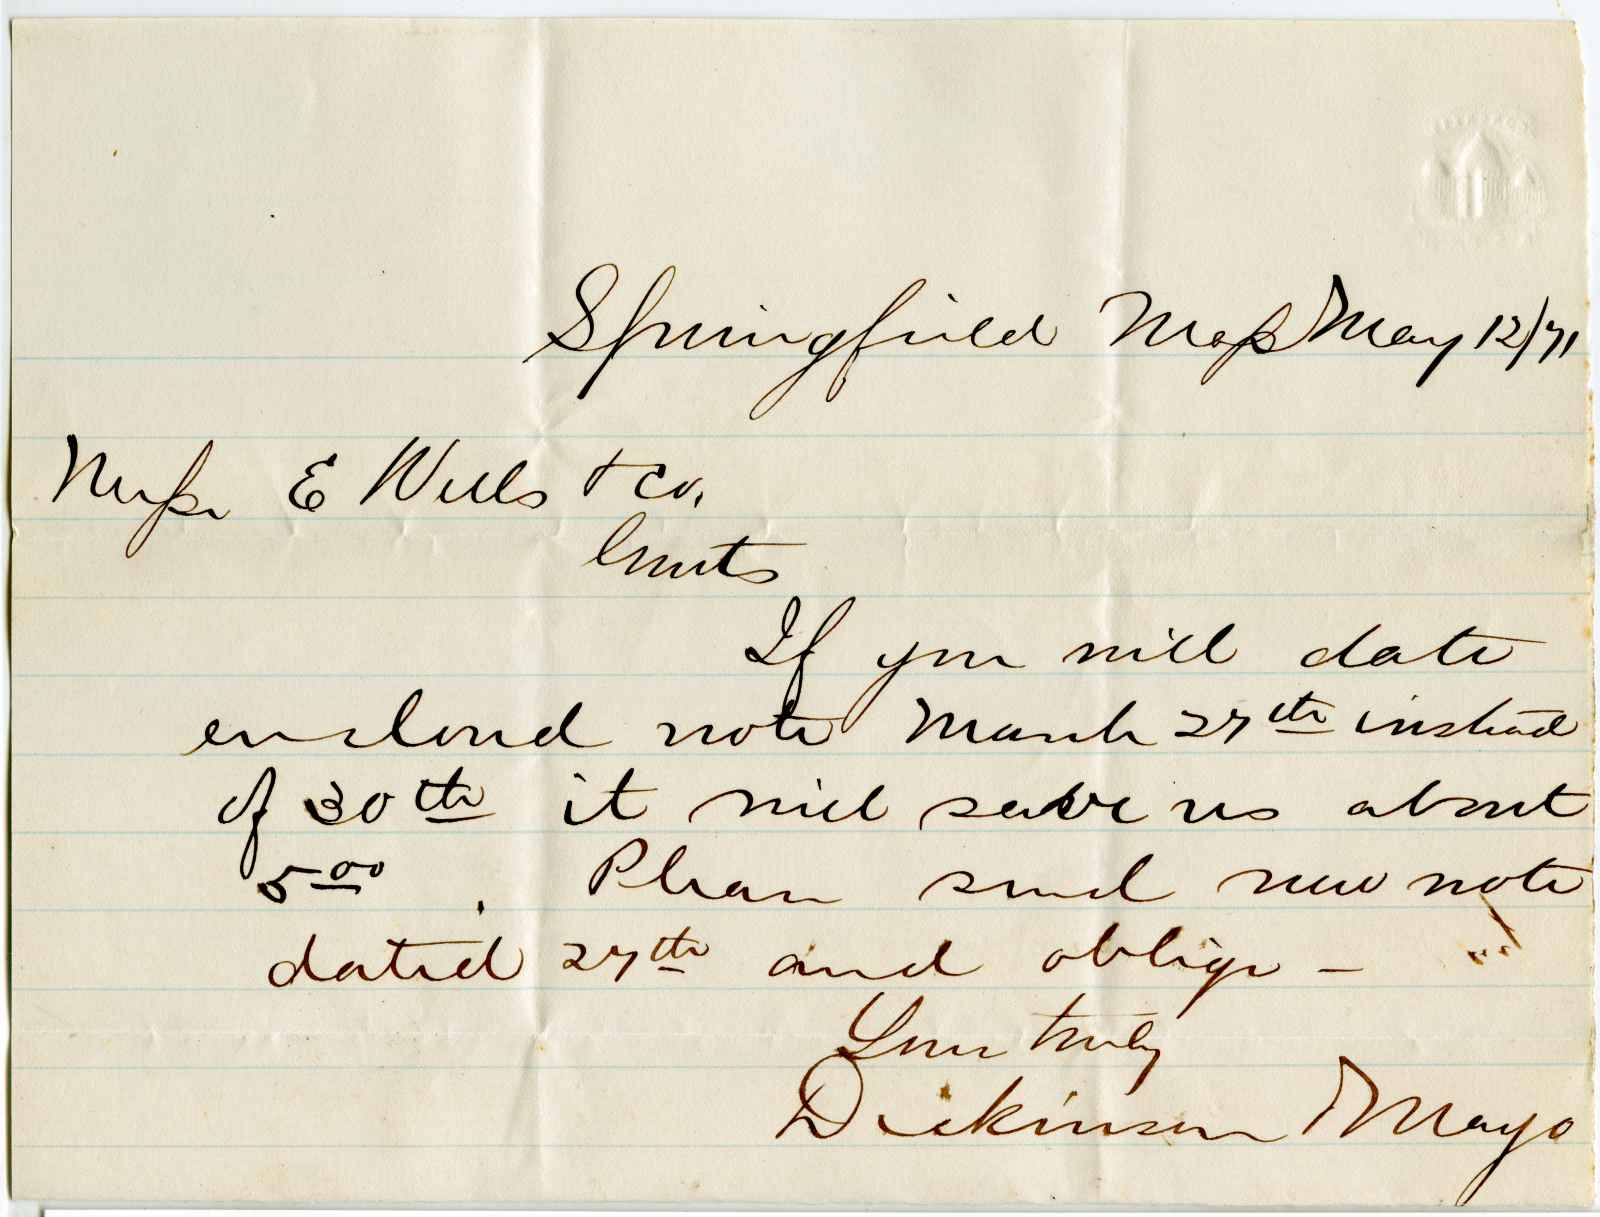 Springfield Mass May 12/71
Messrs E Wells & Co.
Gents
If you will date
enclosed note March 27th instead
of 30th it will save us about
5.00 . Please send new note
dated 27th and oblige —
Yours truly
Dickinson Mayo